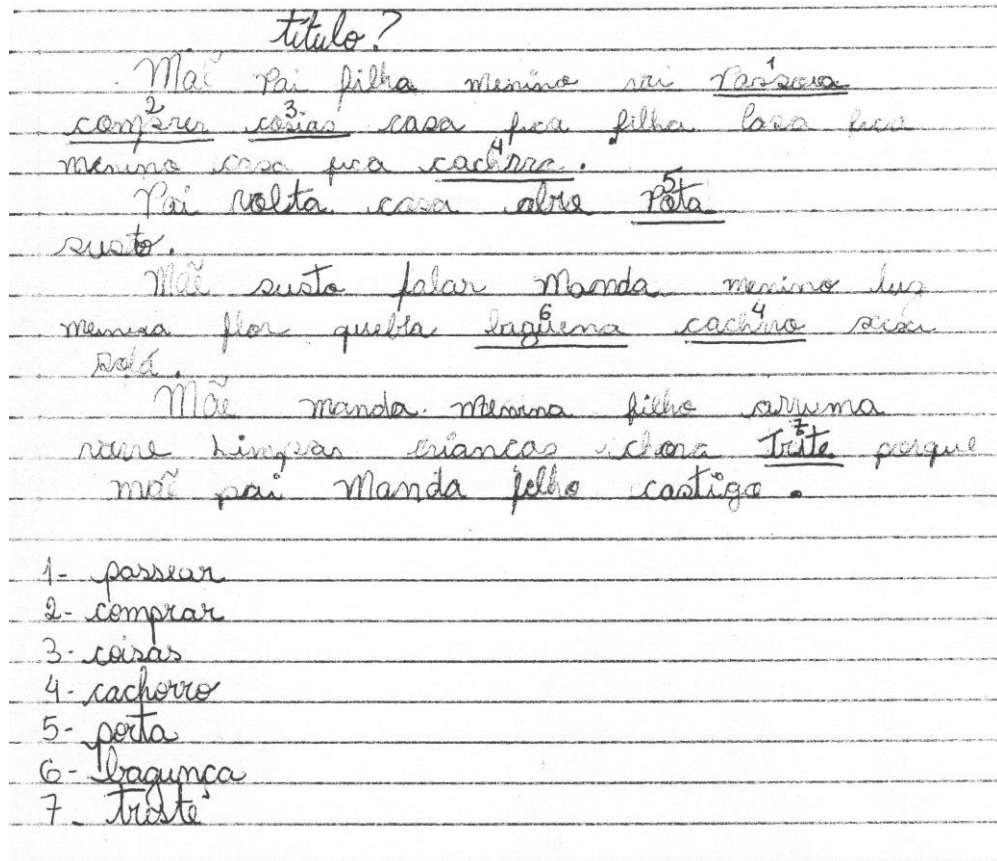 título?
Mãe Pai filha menino vai Passova
comprer cosias casa fica filha casa fica
menino casa fica cachrro.
Pai volta casa abre Pota
susto.
Mãe susto falar Manda menino luz
menina flor quebla bagüena cachiro xixi
sofá.
Mãe manda menina filho arruma
varre Limpar crianças chora trite porque
mãe pai Manda filho castigo.
1- passear
2- comprar
3- coisas
4- cachorro
5- porta
6- bagunça
7- triste